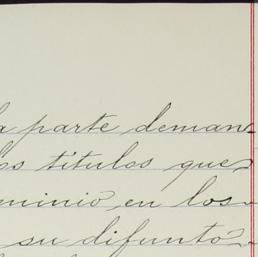 la parte deman-
los titulos que
minio en los
su difunto